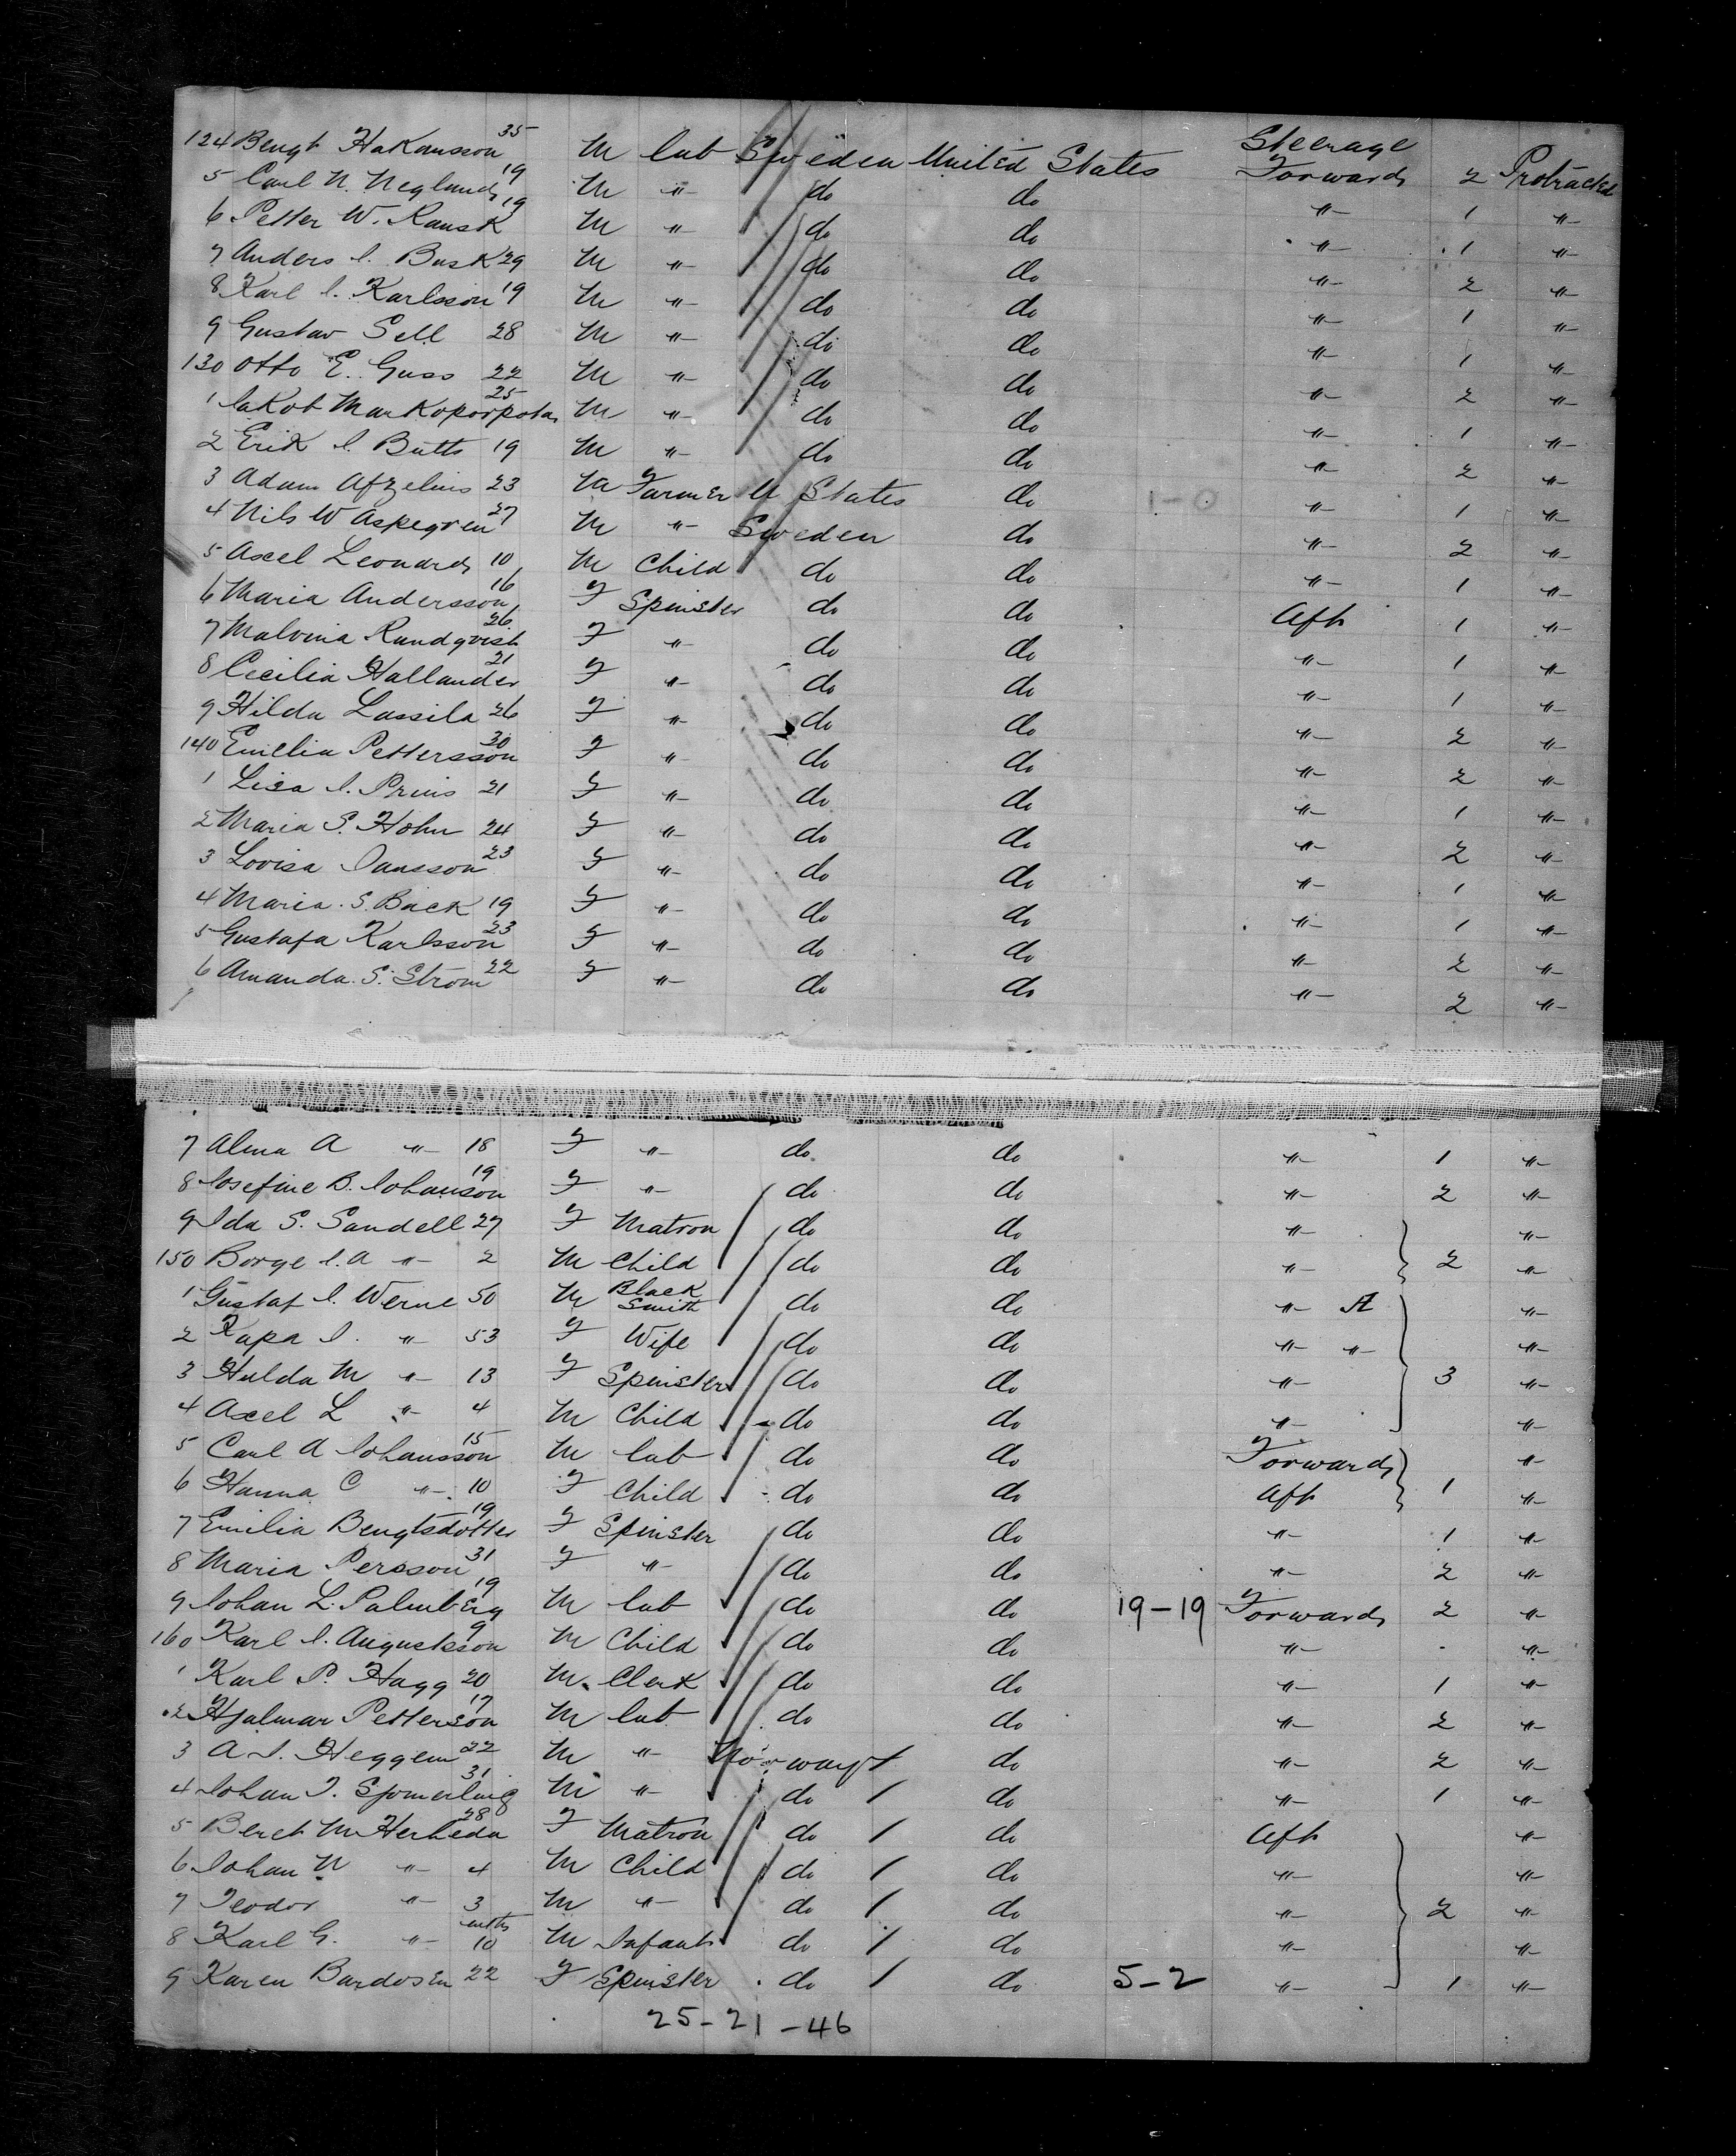 124 Bengt Hakansson 35 M lab Sweden United States Steerage Forwards 2 Protracted
5 Carl N. Neglund 19 M " do do " 1 "
6 Petter W. Rausk 19 M " do do " 1 "
7 Anders I. Busk 29 M " do do " 2 "
8 Karl I. Karlsson 19 M " do do " 1 "
9 Gustav Sell 28 M " do do " 1 "
130 Otto E. Guss 22 M " do do " 2 "
1 Jakob 25 M " do do " 1 "
2 Erik I. Butts 19 M " do do " 2 "
3 Adam Afzelius 23 M Farmer U States do 1-0 " 1 "
4 Nils W Aspegren 27 M " Sweden do " 2 "
5 Axel Leonard 10 M Child do do " 1 "
6 Maria Andersson 16 F Spinster do do Aft 1 "
7 Malvina Rundqvist 26 F " do do " 1 "
8 Cecilia Hallander 21 F " do do " 1 "
9 Hilda Lassila 26 F " do do " 2 "
140 Emilia Pettersson 30 F " do do " 2 "
1 Lisa I. Prius 21 F " do do " 1 "
2 Maria S. Hohn 24 F " do do " 2 "
3 Lovisa Jansson 23 F " do do " 1 "
4 Maria S. Back 19 F " do do " 1 "
5 Gustafa Karlsson 23 F " do do " 2 "
6 Amanda S. Strom 22 F " do do " 2 "
7 Alma A " 18 F " do do " 1 "
8 Josefine B. Johanson 19 F " do do " 2 "
9 Ida S. Sandell 27 F Matron do do " "
150 Borge I. A " 2 M Child do do " 2 "
1 Gustaf I. Werne 50 M Black Smith do do " A "
2 Kapa I. " 53 F Wife do do " " "
3 Hulda M " 13 F Spinster do do " 3 "
4 Axel L " 4 M Child do do " "
5 Carl A Johansson 15 M lab do do Forwards "
6 Hanna C " 10 F Child do do Aft 1 "
7 Emilia Bengtsdotter 19 F Spinster do do " 1 "
8 Maria Persson 31 F " do do " 2 "
9 Johan L. Palmberg 19 M lab do do 19-19 Forwards 2 "
160 Karl I. Augustsson 9 M Child do do " "
1 Karl P. Hagg 20 M Clerk do do " 1 "
2 Hjalmar Petterson 17 M lab do do " 2 "
3 A. I. Heggem 22 M " Norway 1 do " 2 "
4 Johan J. 31 M " do 1 do " 1 "
5 Beret M Herheda 28 F Matron do 1 do Aft "
6 Johan N " 4 M Child do 1 do " "
7 Teodor " 3 M " do 1 do " 2 "
8 Karl G. " mths 10 M Infant do 1 do " "
9 Karen Bardosen 22 F Spinster do 1 do 5-2 " 1 "
25-21-46